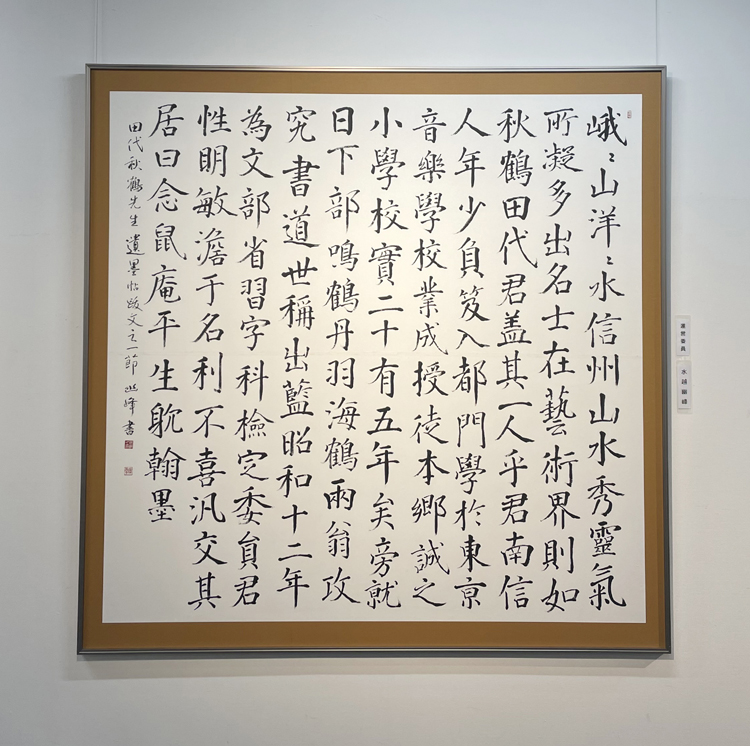 峨〻山洋〻水信州山水秀靈氣
所凝多出名士在藝術界則如
秋鶴田代君盖其一人乎君南信
人年少負笈入都門學於東亰
音樂學校業成授徒本鄉誠之
小學校實二十有五年矣旁就
日下部鳴鶴丹羽海鶴兩翁攻
究書道世稱出藍昭和十二年
為文部省習字科檢定委員君
性明敏澹于名利不喜汎交其
居曰念鼠庵平生耽翰墨
田代秋鶴先生遺墨帖跋文之一節 峰書
運営委員
水越 峰